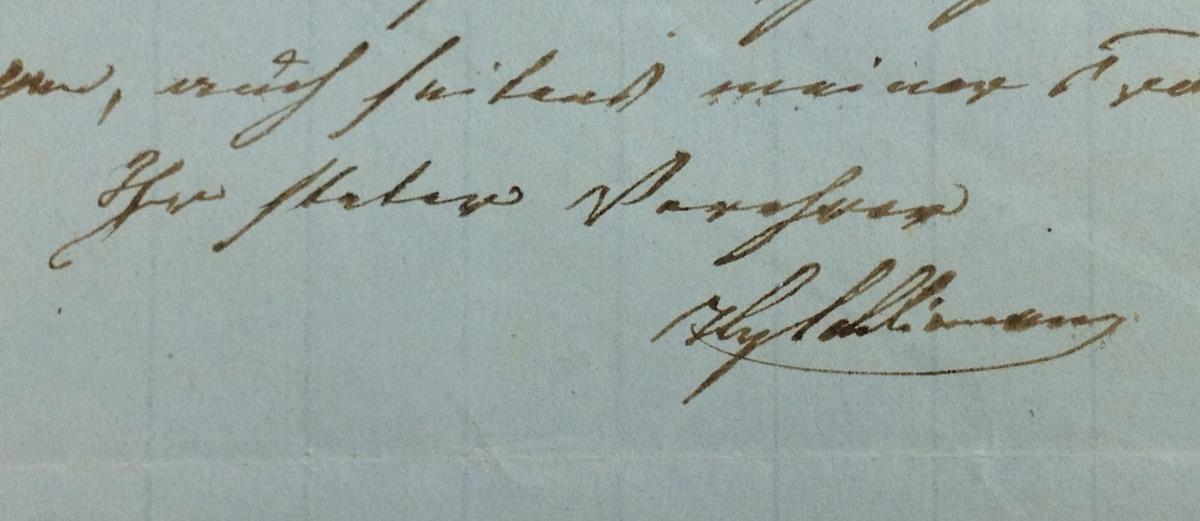 auch seitens meiner
Ihr steter Verehrer
Hy Schliemann